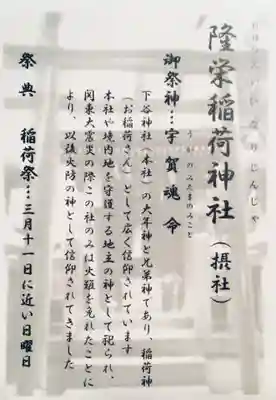 りゅうえいいなりじんじゃ
隆栄稲荷神社（摂社）
うかのみたまのみこと
御祭神…宇賀魂命
下谷神社（本社）の大年神と兄弟神であり 稲荷神
（お稲荷さん）として広く信仰されています
本社や境内地を守護する地主の神として祀られ、
関東大震災の際この社のみは火難を免れたことに
より、以後火防の神として信仰されてきました
祭典 稲荷祭…三月十一日に近い日曜日